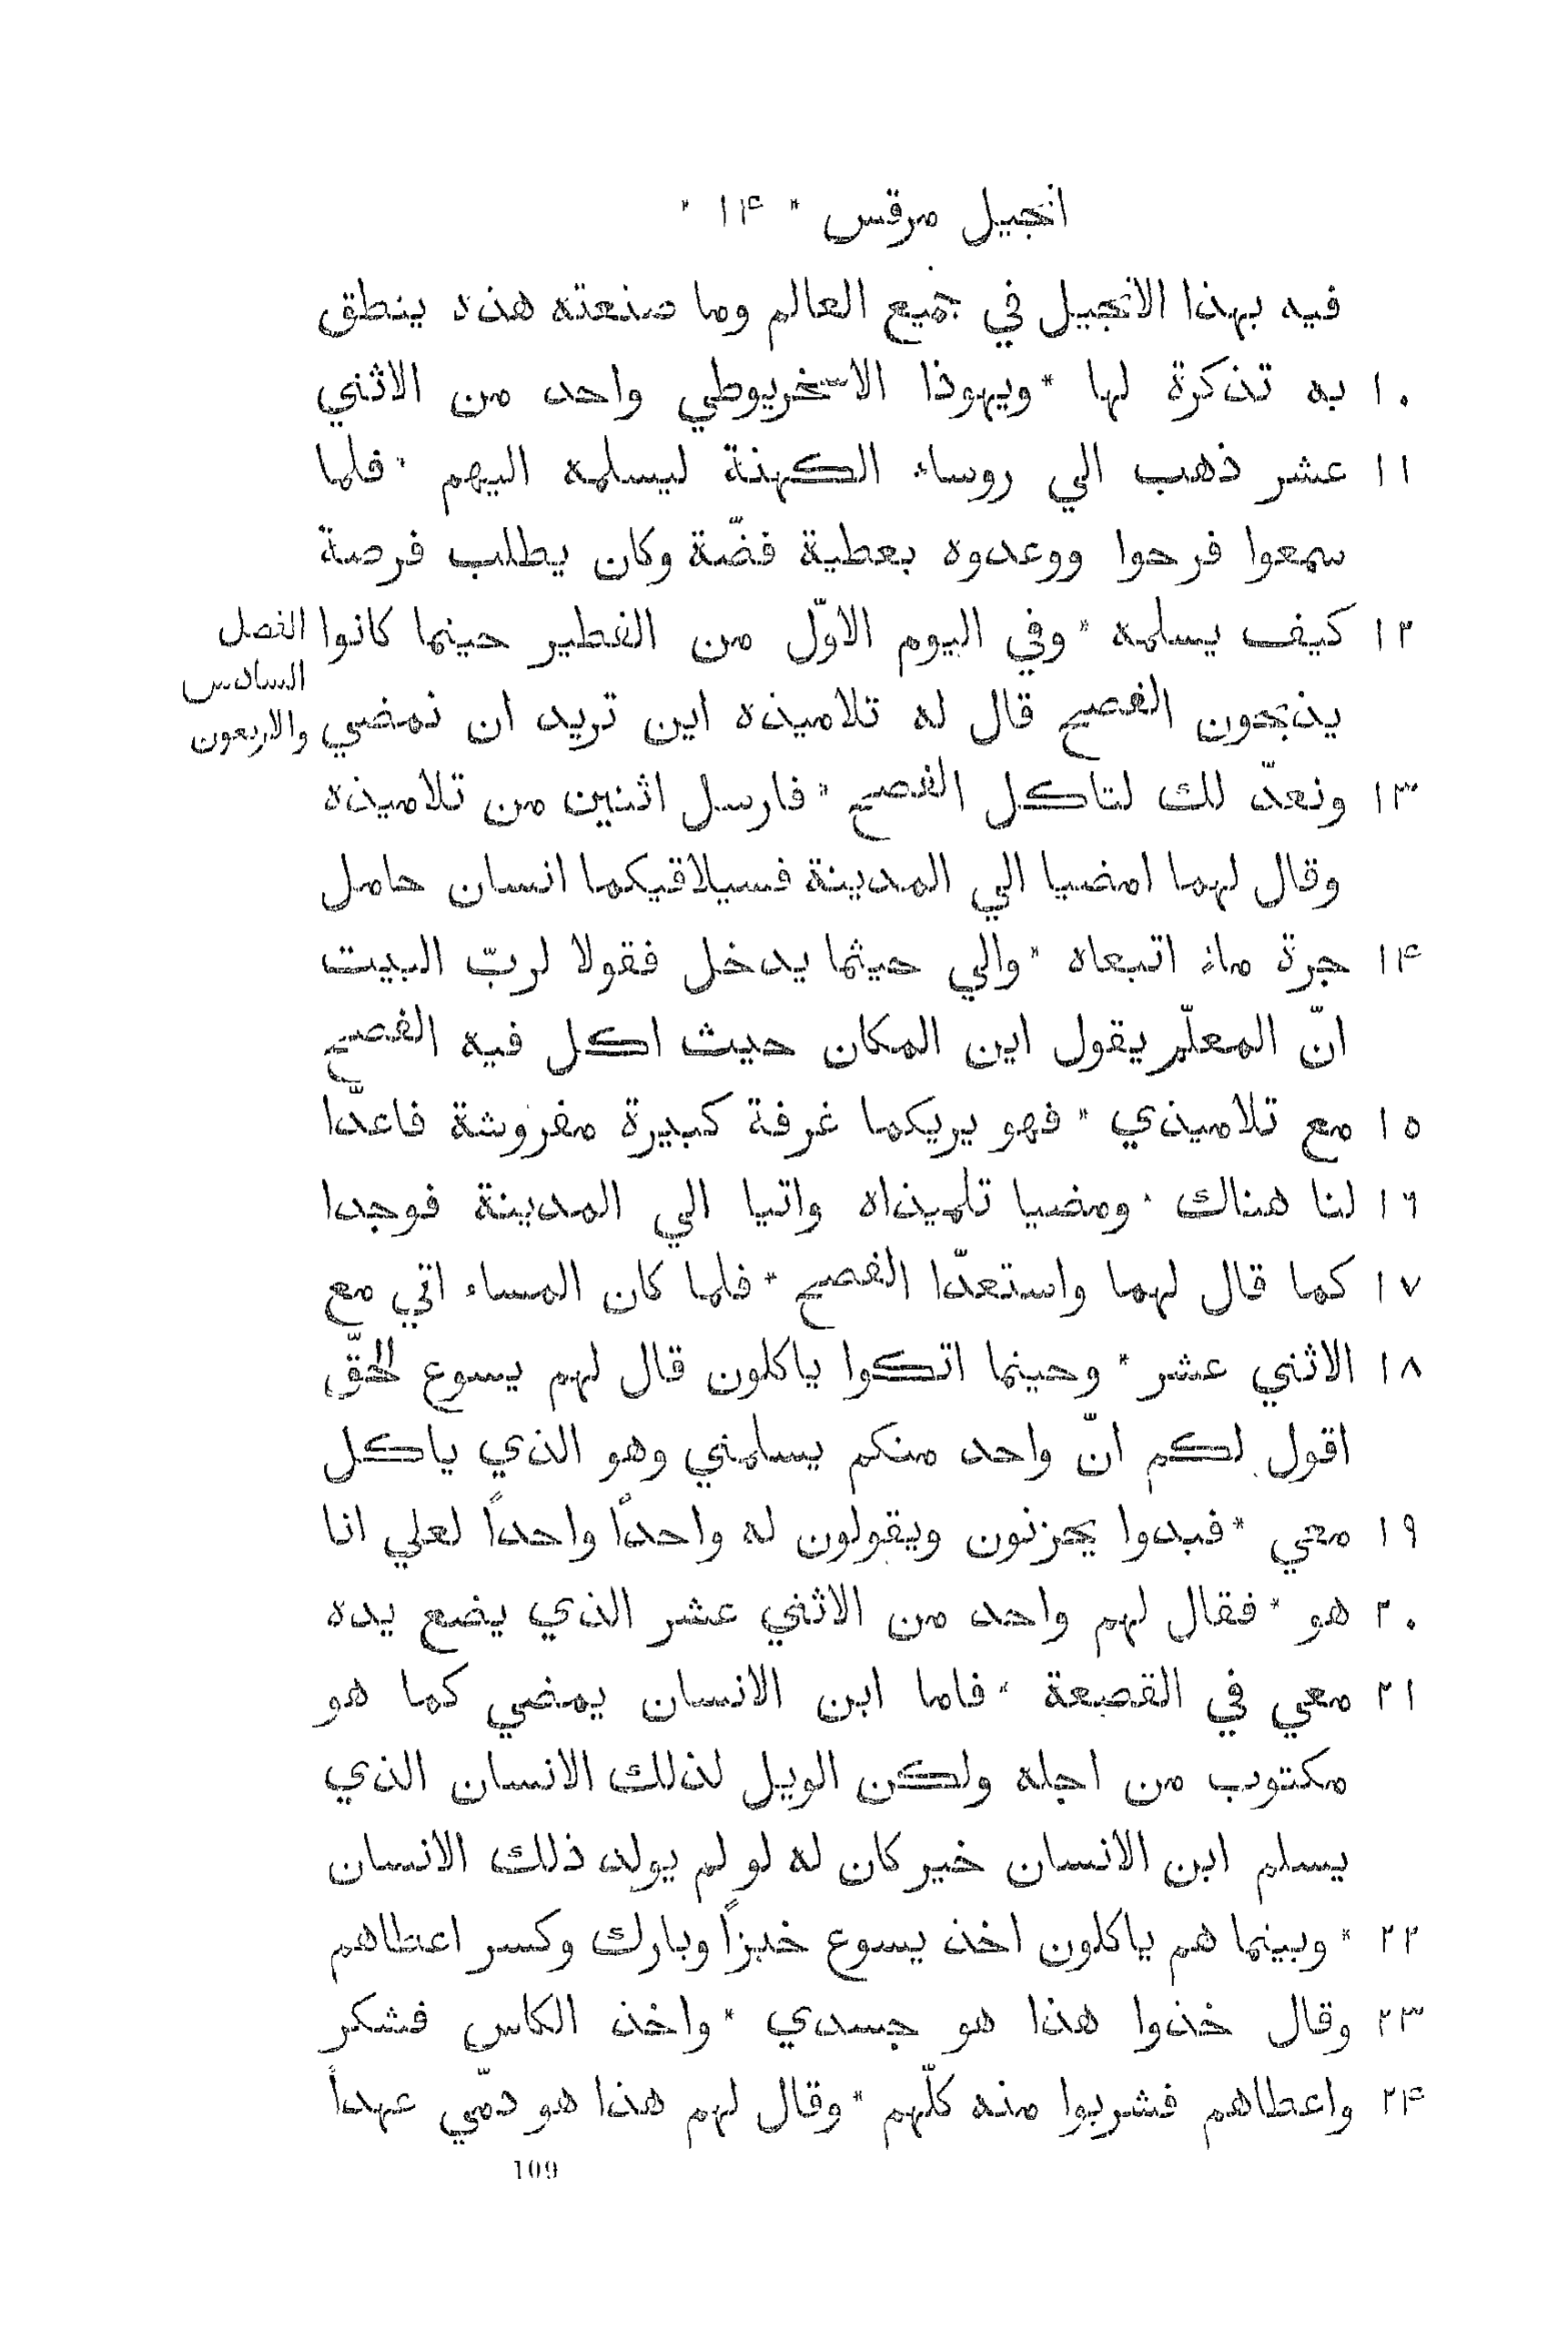 انجيل مرقس * ١۴ *
فيه بهذا الانجيل في جميع العالم وما صنعته هذه ينطق
١٠ به تذكرة لها * ويهوذا الاسخريوطي واحد من الاثني
١١ عشر ذهب الي روساء الكهنة ليسلمه اليهم * فلما
سمعوا فرحوا ووعدوه بعطية فضّة وكان يطلب فرصة
١٢ كيف يسلمه * وفي اليوم الاوّل من الفطير حينما كانوا الفصل
السادس
يذبحون الفصح قال له تلاميذه اين تريد ان نمضي والاربعون
١٣ ونعدّ لك لتاكل الفصح * فارسل اثنين من تلاميذه
وقال لهما امضيا الي المدينة فسيلاقيكما انسان حامل
١۴ جرة ماء اتبعاه * والي حيثما يدخل فقولا لربّ البيت
انّ المعلّم يقول اين المكان حيث اكل فيه الفصح
١٥ مع تلاميذي * فهو يريكما غرفة كبيرة مفروشة فاعدّا
١٦ لنا هناك * ومضيا تلميذاه واتيا الي المدينة فوجدا
١٧ كما قال لهما واستعدّا الفصح * فلما كان المساء اتي مع
١٨ الاثني عشر * وحينما اتكوا ياكلون قال لهم يسوع الحقّ
اقول لكم انّ واحد منكم يسلمني وهو الذي ياكل
١٩ معي * فبدوا يحزنون ويقولون له واحداً واحداً لعلي انا
٢٠ هو * فقال لهم واحد من الاثني عشر الذي يضع يده
٢١ معي في القصعة * فاما ابن الانسان يمضي كما هو
مكتوب من اجله ولكن الويل لذلك الانسان الذي
يسلم ابن الانسان خير كان له لو لم يولد ذلك الانسان
٢٢ * وبينما هم ياكلون اخذ يسوع خبزاً وبارك وكسر اعطاهم
٢٣ وقال خذوا هذا هو جسدي * واخذ الكاس فشكر
٢۴ واعطاهم فشربوا منه كلّهم * وقال لهم هذا هو دمّي عهداً
109